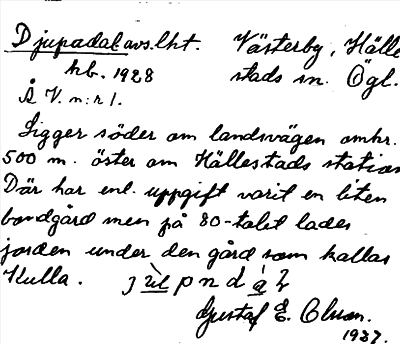 Djupadal avs.lht. Västerby, Hälle
hb. 1928 stads sn. Ögl.
Å V. n:r 1.
Ligger söder om landsvägen omkr.
500 m. öster om Hällestads station
Där har enl. uppgift varit en liten
bondgård men på 80-talet lades
jorden under den gård som kallas
Kulla.
Gustaf E. Olsson.
1937.